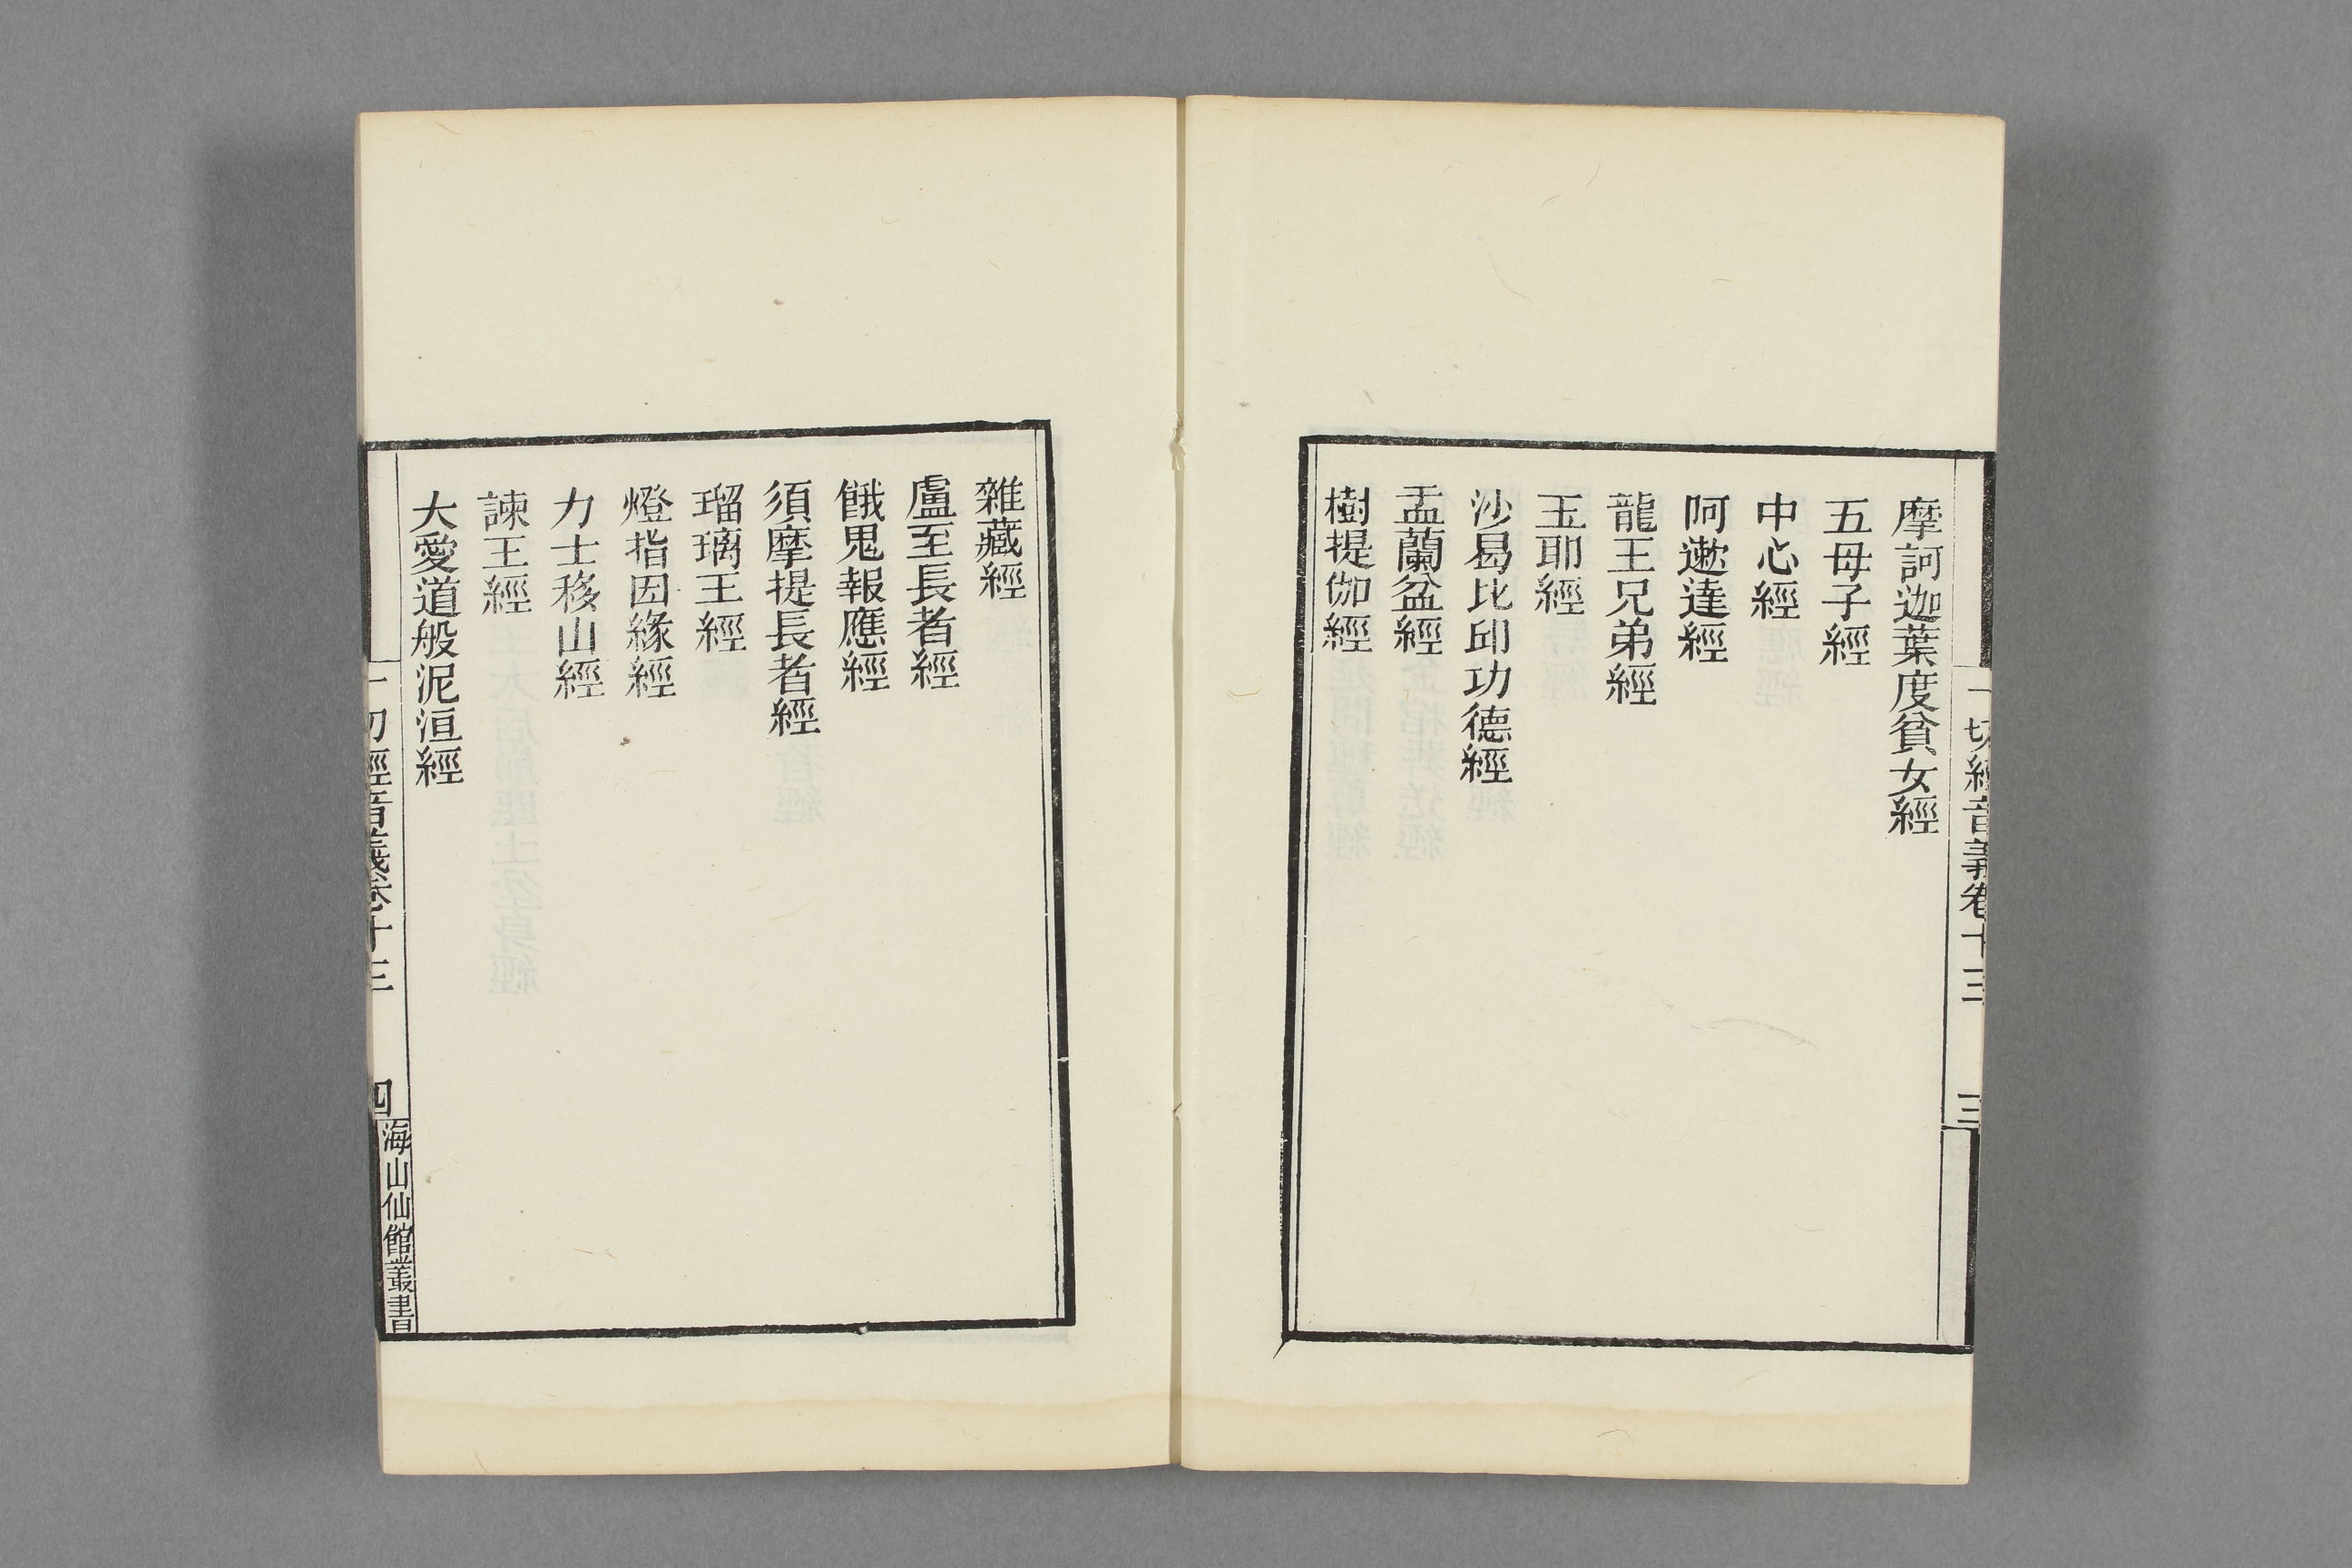 一切經音義卷十三
三
摩訶迦葉度貧女經
五母子經
中心經
阿遬達經
龍王兄弟經
玉耶經
沙曷比邱功德經
盂蘭盆經
樹提伽經
雜藏經
盧至長者經
餓鬼報應經
須摩提長者經
瑠璃王經
燈指因緣經
力士移山經
諫王經
大愛道般泥洹經
一切經音義卷十三
四
海山仙館叢書